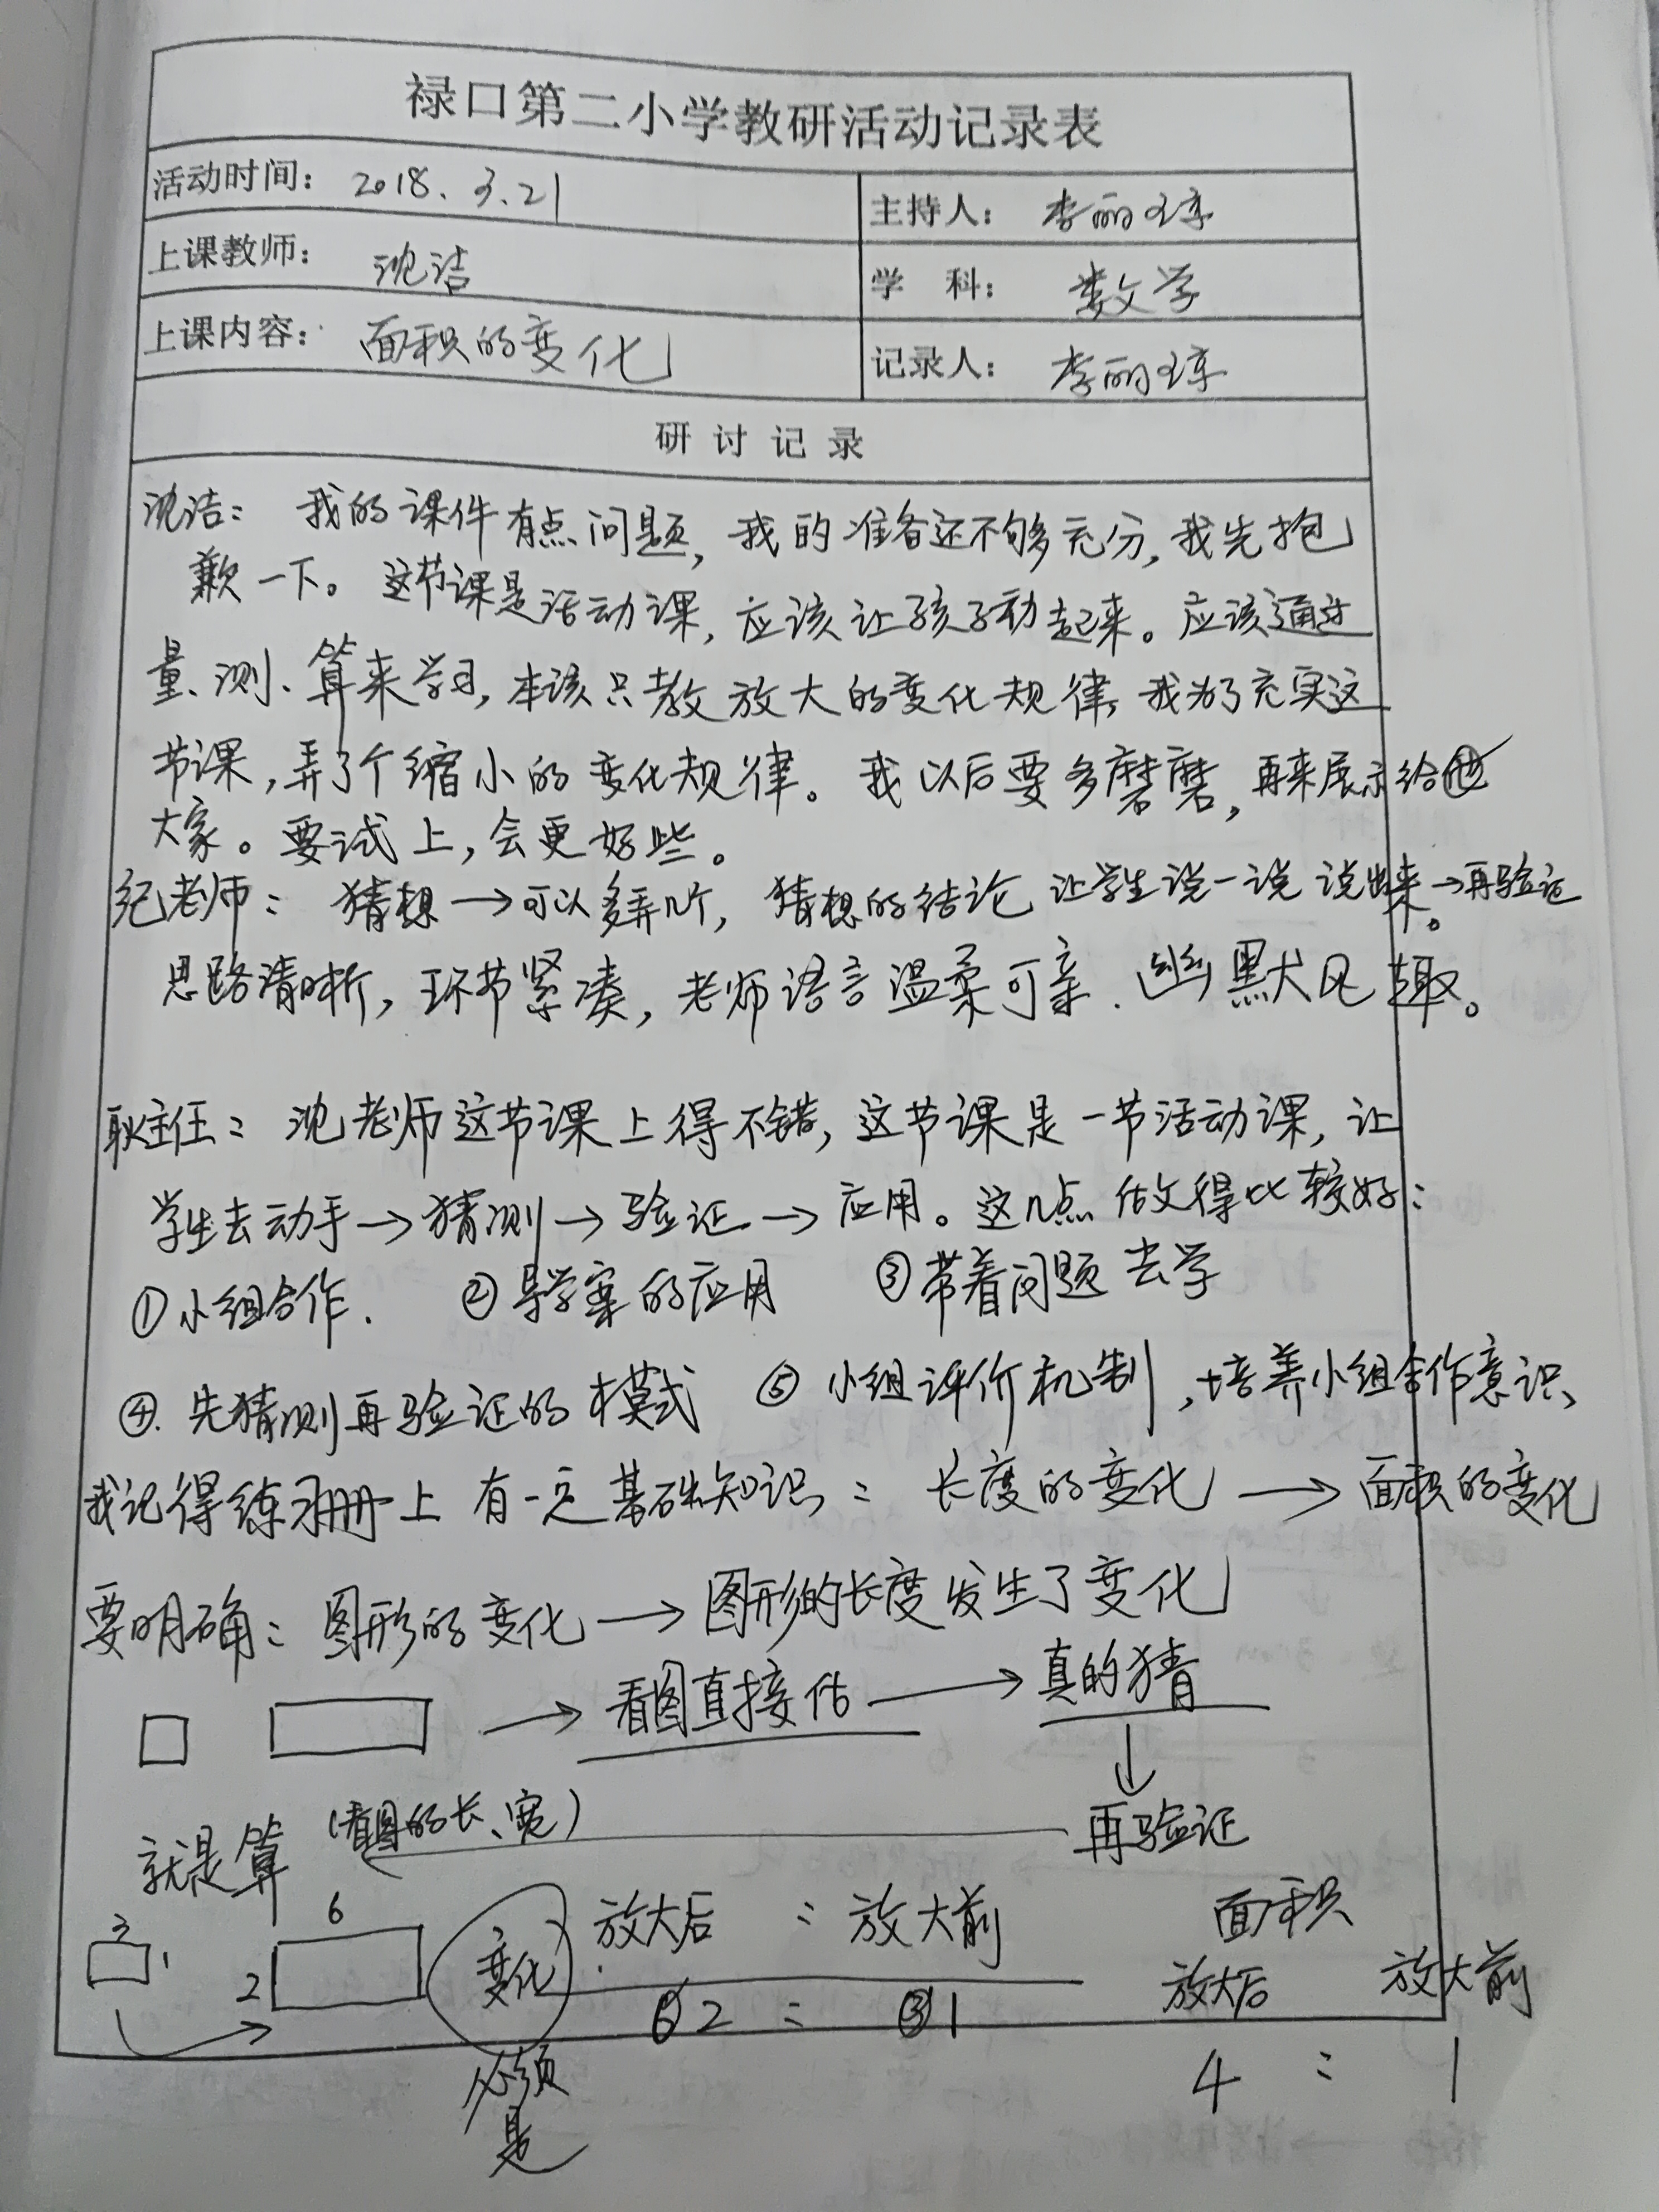 禄口第二小学教研活动记录表
活动时间： 2018.3.21 主持人： 李丽
上课教师： 沈洁 学 科： 数学
上课内容： 面积的变化 记录人： 李丽
研 讨 记 录
沈洁： 我的课件有点问题，我的准备还不够充分，我先抱
歉一下。这节课是活动课，应该让孩子动起来。应该通过
量、测、算来学习，本该只教放大的变化规律，我为了充实这
节课，弄了个缩小的变化规律。我以后要多磨磨，再来展示给
大家。要试上，会更好些。
纪老师： 猜想→可以多弄几个，猜想的结论让学生说一说 说出来→再验证
思路清晰，环节紧凑，老师语言温柔可亲、幽默风趣。
耿主任： 沈老师这节课上得不错，这节课是一节活动课，让
学生去动手→猜测→验证→应用。这几点做得比较好：
①小组合作. ②导学案的应用 ③带着问题去学
④.先猜测再验证的模式 ⑤小组评价机制，培养小组合作意识
我记得练习册上有一定基础知识： 长度的变化→面积的变化
要明确： 图形的变化→图形的长度发生了变化
→看图直接估→真的猜
↓
就是算（看图的长、宽） 再验证
3 1 6 2 变化 放大后 ： 放大前 面积
2 ： 1 放大后 放大前
必须是 4 ： 1